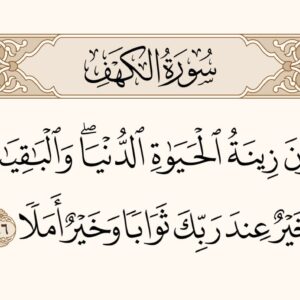 سُورَةُ الكَهْفِ
زِينَةُ ٱلْحَيَوٰةِ ٱلدُّنْيَاۖ
عِندَ رَبِّكَ ثَوَابٗا وَخَيْرٌ أَمَلٗا